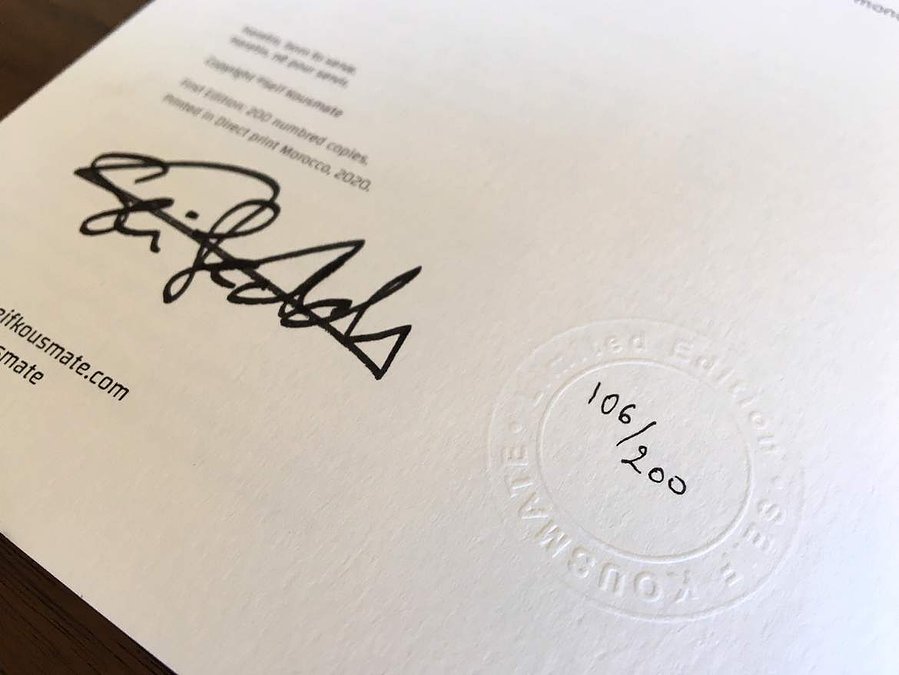 Haratin, born to serve.
Haratin, né pour servir.
Copyright ©Seif Kousmate
First Edition: 200 numbred copies.
Printed in Direct print Morocco, 2020.
eifkousmate.com
smate
Limited Edition • SEIF KOUSMATE •
106/200